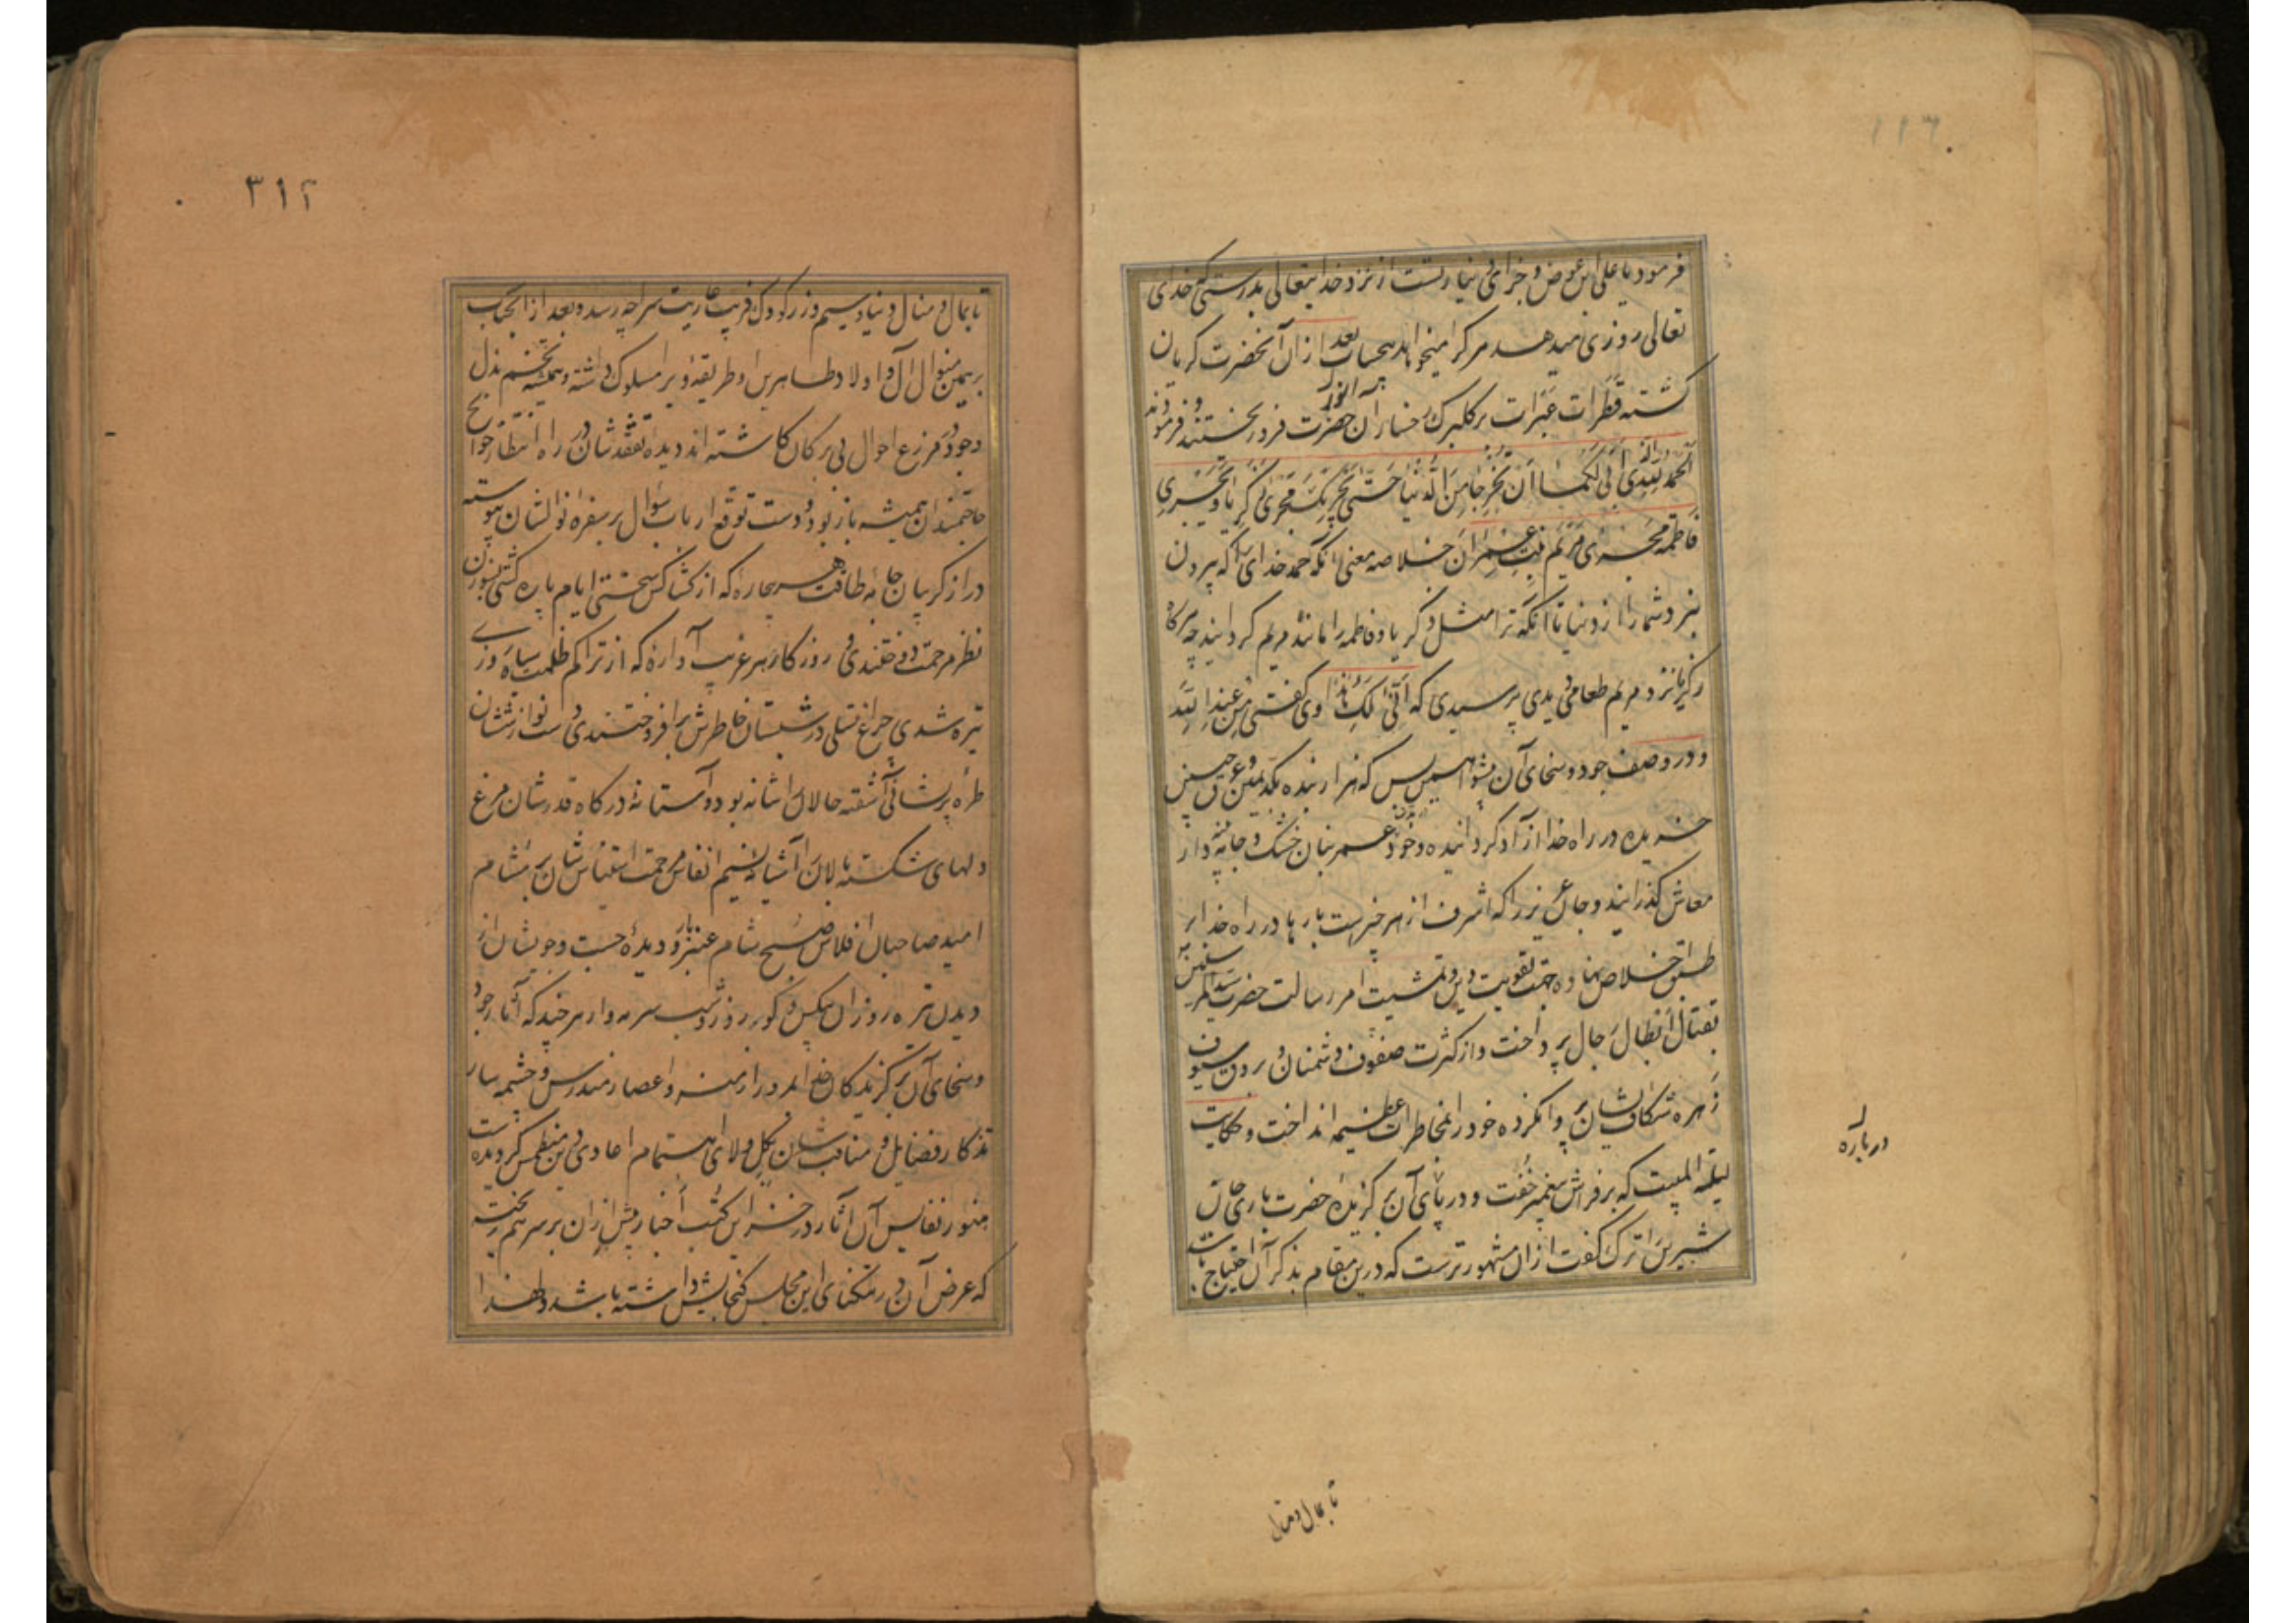 فرمود یا علی این عوض و جزای دینار تست از نزد خدایتعالی بدرستی که خدای
تعالی روزی میدهد هر کرا میخواهد بیحساب بعد از آن آنحضرت گریان
گشته قطرات عبرات بر گلبرک رخسار آن حضرت فرو ریختند و فرمودند
الحمد لله الذی أبی لکما أن تخرجا من الدنیا حتی یجریک مجری زکریا و یجری
فاطمة مجری مریم بنت عمران خلاصه معنی آنکه حمد خدای را که بیرون
نبرد شما را از دنیا تا آنکه ترا مثل زکریا و فاطمه را مانند مریم گردانید چه هرگاه
زکریا نزد مریم طعامی دیدی پرسیدی که أنی لک هذا وی گفتی من عند الله
و در وصف جود و سخای آن پیشوا همین بس که هزار بنده بکد یمین و عرق جبین
خریده در راه خدا آزاد گردانیده و خود عمر بنان خشک و جامه پینه دار
معاش گذرانید و جان عزیز را که اشرف از هر چیزست بارها در راه خدا بر
طبق اخلاص نهاده جهت تقویت دین و تمشیت امر رسالت حضرت سید المرسلین
بقتال ابطال رجال پرداخت و از کثرت صفوف دشمنان و بروق سیوف
زهره شکاف ایشان پروا نکرده خود را بمخاطرات عظیمه انداخت و حکایت
لیلة المبیت که بر فراش پیغمبر خفت و در پای آن برگزیده حضرت باری جان
شیرین را ترک گفت از آن مشهورترست که درین مقام بذکر آن احتیاج باشد
درباره
تا بمال و منال
٣١٢
تا بمال و منال دنیا و سیم و زر کودک فریب عاریت سرا چه رسد و بعد از آنجناب
برهمین منوال آل و اولاد طاهرین او طریقه ویرا مسلوک داشته و همیشه تخم بذل
وجود در مزرع احوال بی برکان کاشته اند دیده تفقدشان در راه انتظار حوایج
حاجتمندان همیشه باز بود و دست توقع ارباب سؤال بر سفره نوالشان پیوسته
دراز گریبان جامه طاقت هر بیچاره که از کشاکش سختی ایام پاره گشتی بسوزن
نظر مرحمت دوختندی و روزگار هر غریب آواره که از تراکم ظلمت سیاه روزی
تیره شدی چراغ تسلی در شبستان خاطرش برافروختندی دست نوازششان
طره پریشانی آشفته حالان را شانه بود و آستانه درگاه قدرشان مرغ
دلهای شکسته بالان را آشیانه نسیم انفاس مرحمت اقتباسشان بر مشام
امید صاحبان افلاس صبح شام عنبر بار و دیده جست و جوشان از
دیدن تیره روزان بیکس و کور روز و شب سرمه وار هر چند که آثار جود
و سخای آن برگزیدگان خدا بمرور ازمنه و اعصار مندرس و چشمه سار
تذکار فضایل و مناقب شان بکل ولای اهتمام اعادی دین منطمس گردیده است
هنوز نفایس آن آثار در خزاین کتب اخبار بیش از آن بر سر هم ریخته
که عرض آن در تنکنای این مجلس گنجایش داشته باشد و لهذا